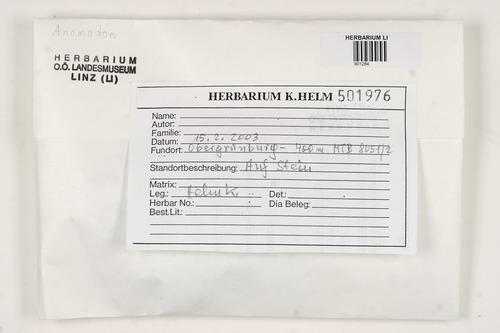 Anomodon
HERBARIUM
O.Ö. LANDESMUSEUM
LINZ (LI)
HERBARIUM LI
901284
HERBARIUM K.HELM 501976
Name:
Autor:
Familie:
Datum: 15.2.2003
Fundort: Obergrünburg - 400m MTB 8051/2
Standortbeschreibung: Auf Stein
Matrix:
Leg.: Helm K. Det.:
Herbar No.: Dia Beleg:
Best.Lit: